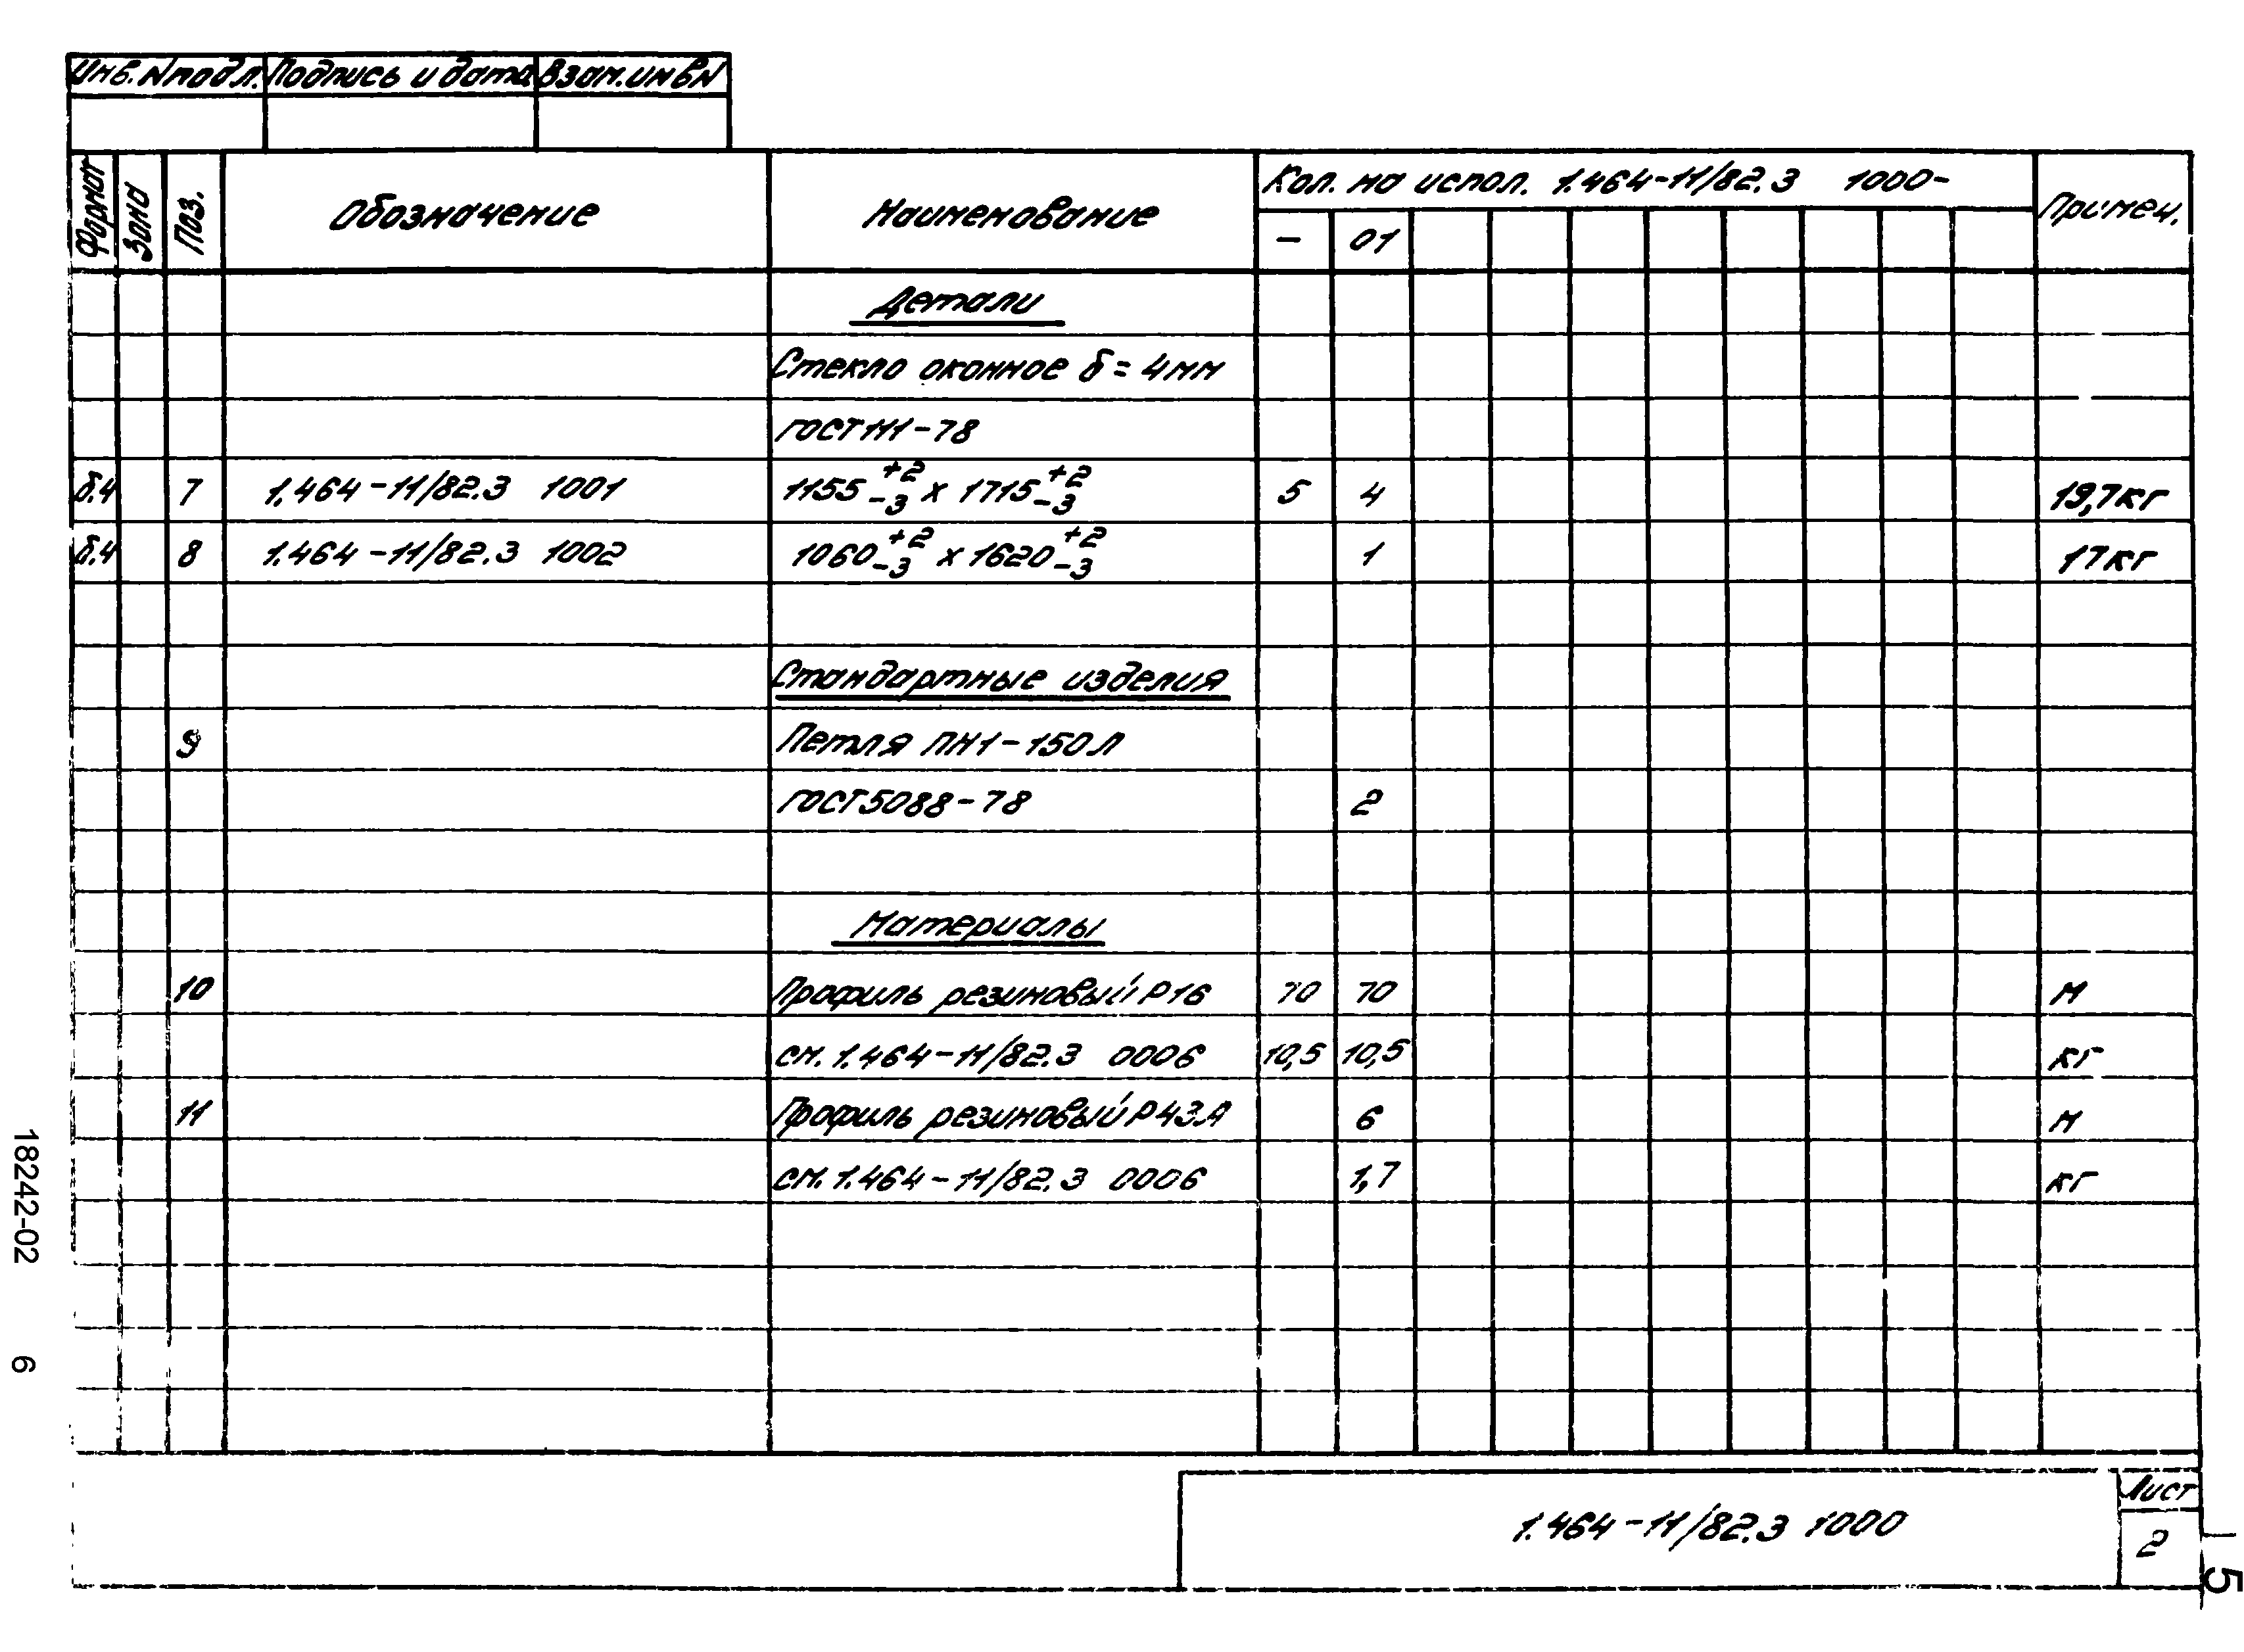 Инв. N подл. Подпись и дата Взам. инв N
Формат Зона Поз. Обозначение Наименование Кол. на испол. 1.464-11/82.3 1000- Примеч.
- 01
Детали
Стекло оконное δ = 4мм
ГОСТ 111-78
б.ч 7 1.464-11/82.3 1001 1155 +2 -3 х 1715 +2 -3 5 4 19,7кг
б.ч 8 1.464-11/82.3 1002 1060 +2 -3 х 1620 +2 -3 1 17кг
Стандартные изделия
9 Петля ПН1-150Л
ГОСТ 5088-78 2
Материалы
10 Профиль резиновый Р16 70 70 м
см. 1.464-11/82.3 0006 10,5 10,5 кг
11 Профиль резиновый Р43.А 6 м
см. 1.464-11/82.3 0006 1,7 кг
1.464-11/82.3 1000
Лист
2
5
18242-02 6